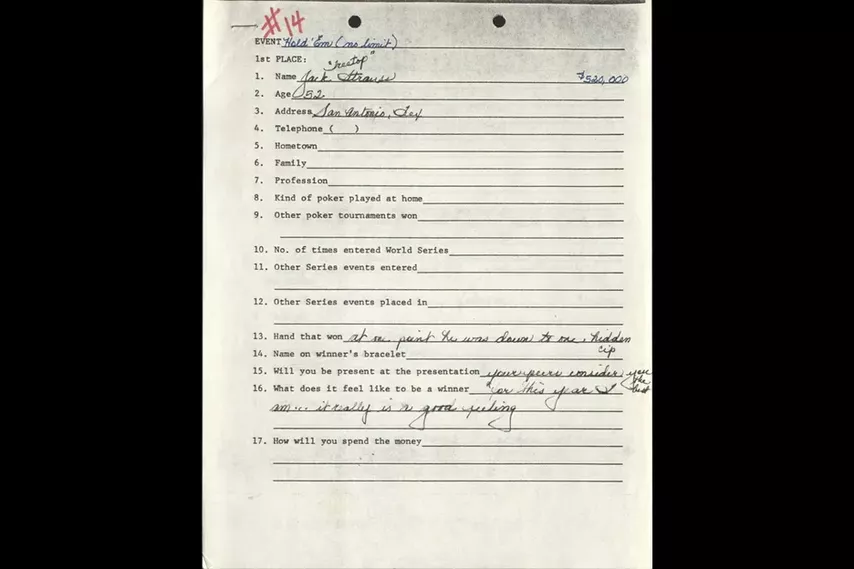 #14
EVENT Hold 'Em (no limit)
1st PLACE: "treetop"
1. Name Jack Strauss $520,000
2. Age 52
3. Address San Antonio, Tex
4. Telephone ( )
5. Hometown
6. Family
7. Profession
8. Kind of poker played at home
9. Other poker tournaments won
10. No. of times entered World Series
11. Other Series events entered
12. Other Series events placed in
13. Hand that won at one point he was down to one, hidden
cip
14. Name on winner's bracelet
15. Will you be present at the presentation your peers consider you
the
best
16. What does it feel like to be a winner "for this year I
am... it really is a good feeling
17. How will you spend the money